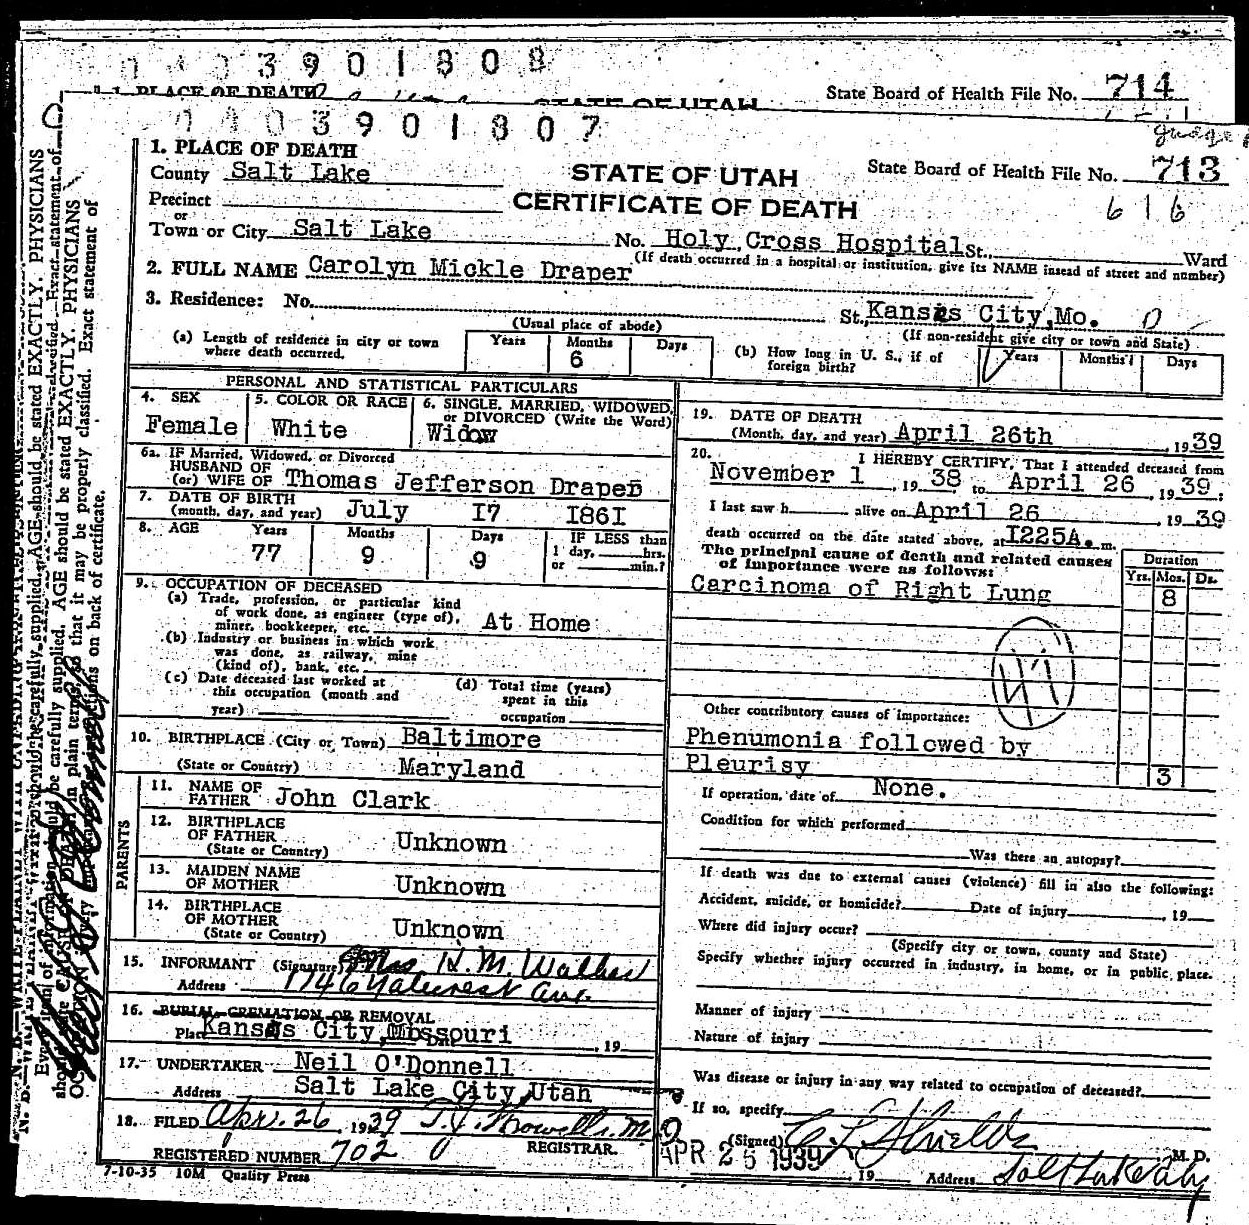 3901808
1. PLACE OF DEATH
STATE OF UTAH
State Board of Health File No. 714
3901807
1. PLACE OF DEATH
County Salt Lake
STATE OF UTAH
CERTIFICATE OF DEATH
State Board of Health File No. 713
616
Precinct
or
Town or City Salt Lake No. Holy Cross Hospital St., Ward
(If death occurred in a hospital or institution, give its NAME insead of street and number)
2. FULL NAME Carolyn Mickle Draper
3. Residence: No. St. Kansas City, Mo. 0
(Usual place of abode)
(If non-resident give city or town and State)
(a) Length of residence in city or town where death occurred. Years Months 6 Days
(b) How long in U. S., if of foreign birth? Years Months Days
PERSONAL AND STATISTICAL PARTICULARS
4. SEX Female
5. COLOR OR RACE White
6. SINGLE, MARRIED, WIDOWED, or DIVORCED (Write the Word) Widow
6a. IF Married, Widowed, or Divorced
HUSBAND OF
(or) WIFE OF Thomas Jefferson Draper
7. DATE OF BIRTH
(month, day, and year) July I7 I86I
8. AGE Years 77 Months 9 Days 9 IF LESS than 1 day, hrs. or min.?
9. OCCUPATION OF DECEASED
(a) Trade, profession, or particular kind of work done, as engineer (type of), miner, bookkeeper, etc. At Home
(b) Industry or business in which work was done, as railway, mine (kind of), bank, etc.
(c) Date deceased last worked at this occupation (month and year)
(d) Total time (years) spent in this occupation
10. BIRTHPLACE (City or Town) Baltimore
(State or Country) Maryland
PARENTS
11. NAME OF FATHER John Clark
12. BIRTHPLACE OF FATHER (State or Country) Unknown
13. MAIDEN NAME OF MOTHER Unknown
14. BIRTHPLACE OF MOTHER (State or Country) Unknown
15. INFORMANT (Signature) Mrs H. M. Walker
Address 1746 Yalecrest Ave.
16. BURIAL, CREMATION OR REMOVAL
Place Kansas City, Missouri Date , 19
17. UNDERTAKER Neil O'Donnell
Address Salt Lake City, Utah
18. FILED Apr. 26, 1939 T. J. Howells, M.D. REGISTRAR.
REGISTERED NUMBER 702
7-10-35 10M Quality Press
19. DATE OF DEATH
(Month, day, and year) April 26th, 1939
20. I HEREBY CERTIFY, That I attended deceased from
November 1, 1938, to April 26, 1939;
I last saw h alive on April 26, 1939
death occurred on the date stated above, at I225A. m.
The principal cause of death and related causes of importance were as follows:
Duration
Yrs. Mos. Ds.
Carcinoma of Right Lung 8
47
Other contributory causes of importance:
Phenumonia followed by
Pleurisy 3
If operation, date of None.
Condition for which performed
Was there an autopsy?
If death was due to external causes (violence) fill in also the following:
Accident, suicide, or homicide? Date of injury , 19
Where did injury occur?
(Specify city or town, county and State)
Specify whether injury occurred in industry, in home, or in public place.
Manner of injury
Nature of injury
Was disease or injury in any way related to occupation of deceased?
If so, specify
(Signed) Shields M. D.
APR 25 1939, 19 Address Salt Lake City